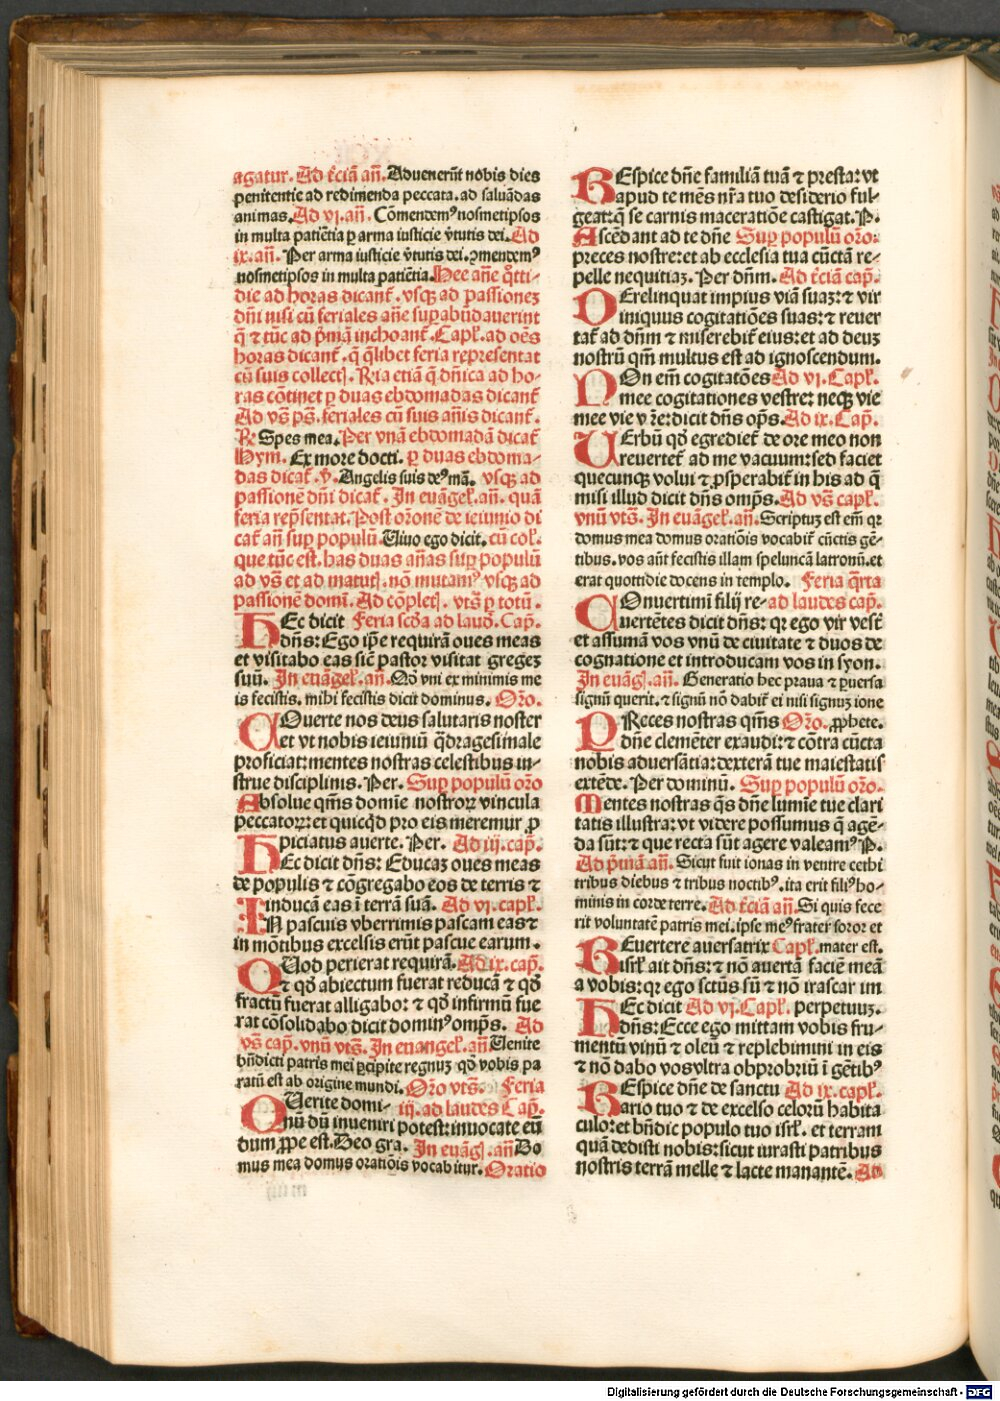 agatur. Ad t̄ciā an̄. Aduenerūt nobis dies
penitentie ad redimenda peccata. ad saluādas
animas. Ad vj. an̄. Cōmendemꝰ nosmetipsos
in multa patiētia ꝑ arma iusticie v̄tutis dei. Ad
ix. an̄. Per arma iusticie v̄tutis dei. ꝯmendemꝰ
nosmetipsos in multa patiētia. Hee an̄e q̊tti-
die ad horas dicant̄. vsqꝫ ad passioneꝫ
dn̄i nisi cū feriales an̄e suꝑabūdauerint
q̄ ⁊ tūc ad p̄mā inchoant̄. Capl̄. ad oēs
horas dicant̄. q̄ q̄libet feria representat
cū suis collectꝭ. Ria etiā q̄ dn̄ica ad ho-
ras cōtinet ꝑ duas ebdomadas dicant̄
Ad vs̄ ps̄. feriales cū suis an̄is dicant̄.
R̄ Spes mea. Per vnā ebdomadā dicat̄
Hym. Ex more docti. ꝑ duas ebdoma-
das dicat̄. v̄. Angelis suis deꝰ mā. vsqꝫ ad
passionē dn̄i dicat̄. In euāgel̄. an̄. quā
feria rep̄sentat. Post or̄onē de ieiunio di
cat̄ an̄ suꝑ populū. Viuo ego dicit. cū col̄.
que tūc est. has duas an̄as suꝑ populū
ad vs̄ et ad matutꝭ. nō mutamꝰ vsqꝫ ad
passionē domī. Ad cōpletꝭ. vts̄ ꝑ totū.
HEc dicit Feria scd̄a ad laud̄. Cap̄.
dn̄s: Ego ip̄e requirā oues meas
et visitabo eas sic̄ pastor visitat gregeꝫ
suū. In euāgel̄. an̄. Qd̄ vni ex minimis me
is fecistis. mihi fecistis dicit dominus. Or̄o.
COuerte nos deus salutaris noster
et vt nobis ieiuniū q̄dragesimale
proficiat: mentes nostras celestibus in-
strue disciplinis. Per. Suꝑ populū or̄o
Absolue qm̄s domīe nostroꝝ vincula
peccatoꝝ: et quicqd̄ pro eis meremur ꝓ
piciatus auerte. Per. Ad iij. cap̄.
HEc dicit dn̄s: Educaꝫ oues meas
de populis ⁊ cōgregabo eos de terris ⁊
inducā eas ī terrā suā. Ad vj. capl̄.
IN pascuis vberrimis pascam eas ⁊
in mōtibus excelsis erūt pascue earum.
QVod perierat requirā. Ad ix. cap̄.
⁊ qd̄ abiectum fuerat reducā ⁊ qd̄
fractū fuerat alligabo: ⁊ qd̄ infirmū fue
rat cōsolidabo dicit dominꝰ omp̄s. Ad
vs̄ cap̄. vnū vts̄. In euangel̄. an̄ Uenite
bn̄dicti patris mei ꝑcipite regnuꝫ qd̄ vobis pa
ratū est ab origine mundi. Or̄o vts̄. Feria
QVerite domi- iij. ad laudes Cap̄.
nū dū inueniri potest: inuocate eū
dum ꝓpe est. Deo gra. In euāgꝭ. an̄ Do
mus mea domus orationis vocabitur. Oratio
REspice dn̄e familiā tuā ⁊ presta: vt
apud te mēs nr̄a tuo desiderio ful-
geat: q̄ se carnis maceratiōe castigat. P.
Ascēdant ad te dn̄e Suꝑ populū or̄o.
preces nostre: et ab ecclesia tua cūctā re-
pelle nequitiaꝫ. Per dn̄m. Ad t̄ciā cap̄.
DErelinquat impius viā suaꝫ: ⁊ vir
iniquus cogitatiōes suas: ⁊ reuer
tat̄ ad dn̄m ⁊ miserebit̄ eius: et ad deuꝫ
nostrū qm̄ multus est ad ignoscendum.
NOn em̄ cogitatōes Ad vj. Capl̄.
mee cogitationes vestre: neqꝫ vie
mee vie vr̄e: dicit dn̄s op̄s. Ad ix. Cap̄.
UErbū qd̄ egrediet̄ de ore meo non
reuertet̄ ad me vacuum: sed faciet
quecunqꝫ volui ⁊ ꝓsperabit̄ in his ad q̄
misi illud dicit dn̄s omp̄s. Ad vs̄ capl̄.
vnū vts̄. In euāgel̄. an̄. Scriptuꝫ est em̄ qꝛ
domus mea domus oratiōis vocabit̄ cūctis gē-
tibus. vos aūt fecistis illam speluncā latronū. et
erat quottidie docens in templo. Feria q̄rta
COnuertimī filij re- ad laudes cap̄.
uertētes dicit dn̄s: qꝛ ego vir vest̄
et assumā vos vnū de ciuitate ⁊ duos de
cognatione et introducam vos in syon.
In euāgꝭ. an̄. Generatio hec praua ⁊ ꝑuersa
signū querit. ⁊ signū nō dabit̄ ei nisi signuꝫ ione
PReces nostras qm̄s Or̄o. ꝓphete.
dn̄e clemēter exaudi: ⁊ cōtra cūcta
nobis aduersātia: dexterā tue maiestatis
extēde. Per dominū. Suꝑ populū or̄o.
Mentes nostras q̄s dn̄e lumīe tue clari
tatis illustra: vt videre possumus q̄ agē-
da sūt: ⁊ que recta sūt agere valeamꝰ P.
Ad p̄mā an̄. Sicut fuit ionas in ventre cethi
tribus diebus ⁊ tribus noctibꝰ. ita erit filiꝰ ho-
minis in corde terre. Ad t̄ciā an̄. Si quis fece
rit voluntatē patris mei. ipse meꝰ frater soror et
REuertere auersatrix Capl̄. mater est.
isrl̄ ait dn̄s: ⁊ nō auertā faciē meā
a vobis: qꝛ ego sctūs sū ⁊ nō irascar im
HEc dicit Ad vj. Capl̄. perpetuuꝫ.
dn̄s: Ecce ego mittam vobis fru-
mentū vinū ⁊ oleū ⁊ replebimini in eis
⁊ nō dabo vos vltra obprobriū ī gētibꝰ
REspice dn̄e de sanctu Ad ix. capl̄.
ario tuo ⁊ de excelso celorū habita
culo: et bn̄dic populo tuo isrl̄. et terram
quā dedisti nobis: sicut iurasti patribus
nostris terrā melle ⁊ lacte manantē. Ad
Digitalisierung gefördert durch die Deutsche Forschungsgemeinschaft - DFG